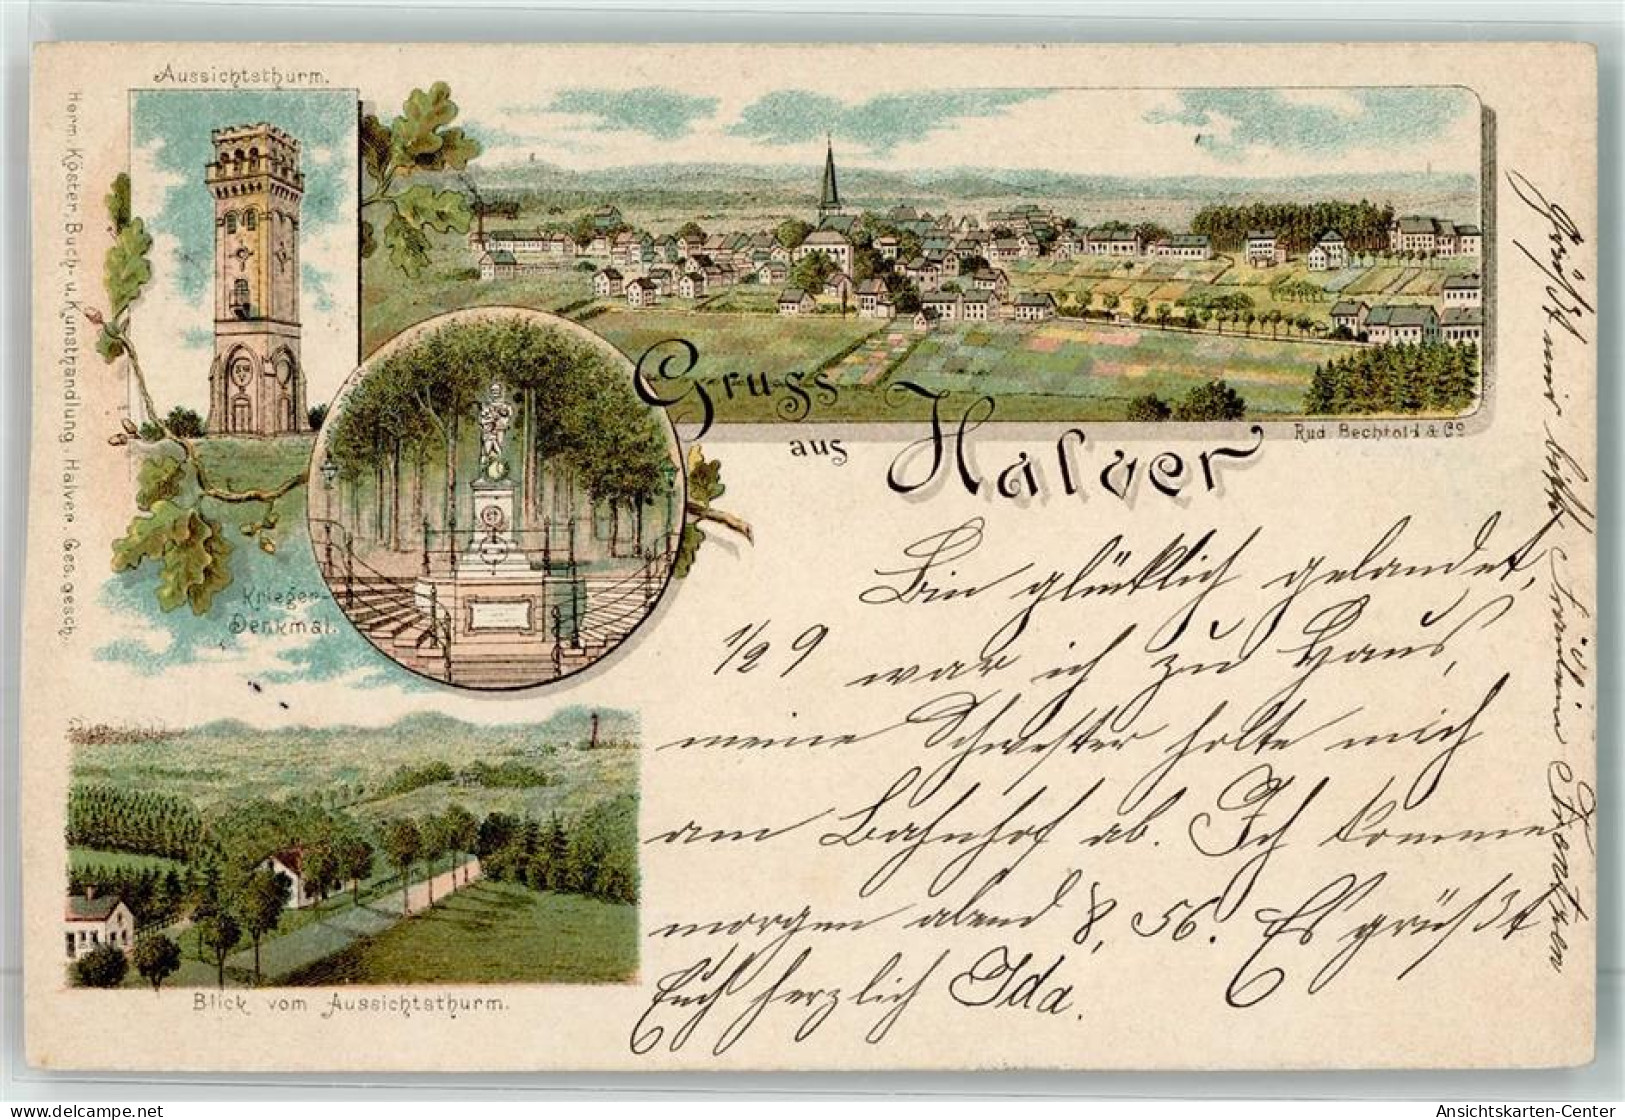 Aussichtsthurm.
Herm. Köster, Buch- u. Kunsthandlung, Halver. Ges. gesch.
Rud. Bechtold & Co
Gruss
aus
Halver
Krieger-
Denkmal.
Blick vom Aussichtsthurm.
Bin glücklich gelandet,
1/2 9 war ich zu Haus,
meine Schwester holte mich
am Bahnhof ab. Ich komme
morgen abend 8,56. Es grüßt
Euch herzlich Ida.
Grüßt mir bitte Fräulein
delcampe.net
Ansichtskarten-Center